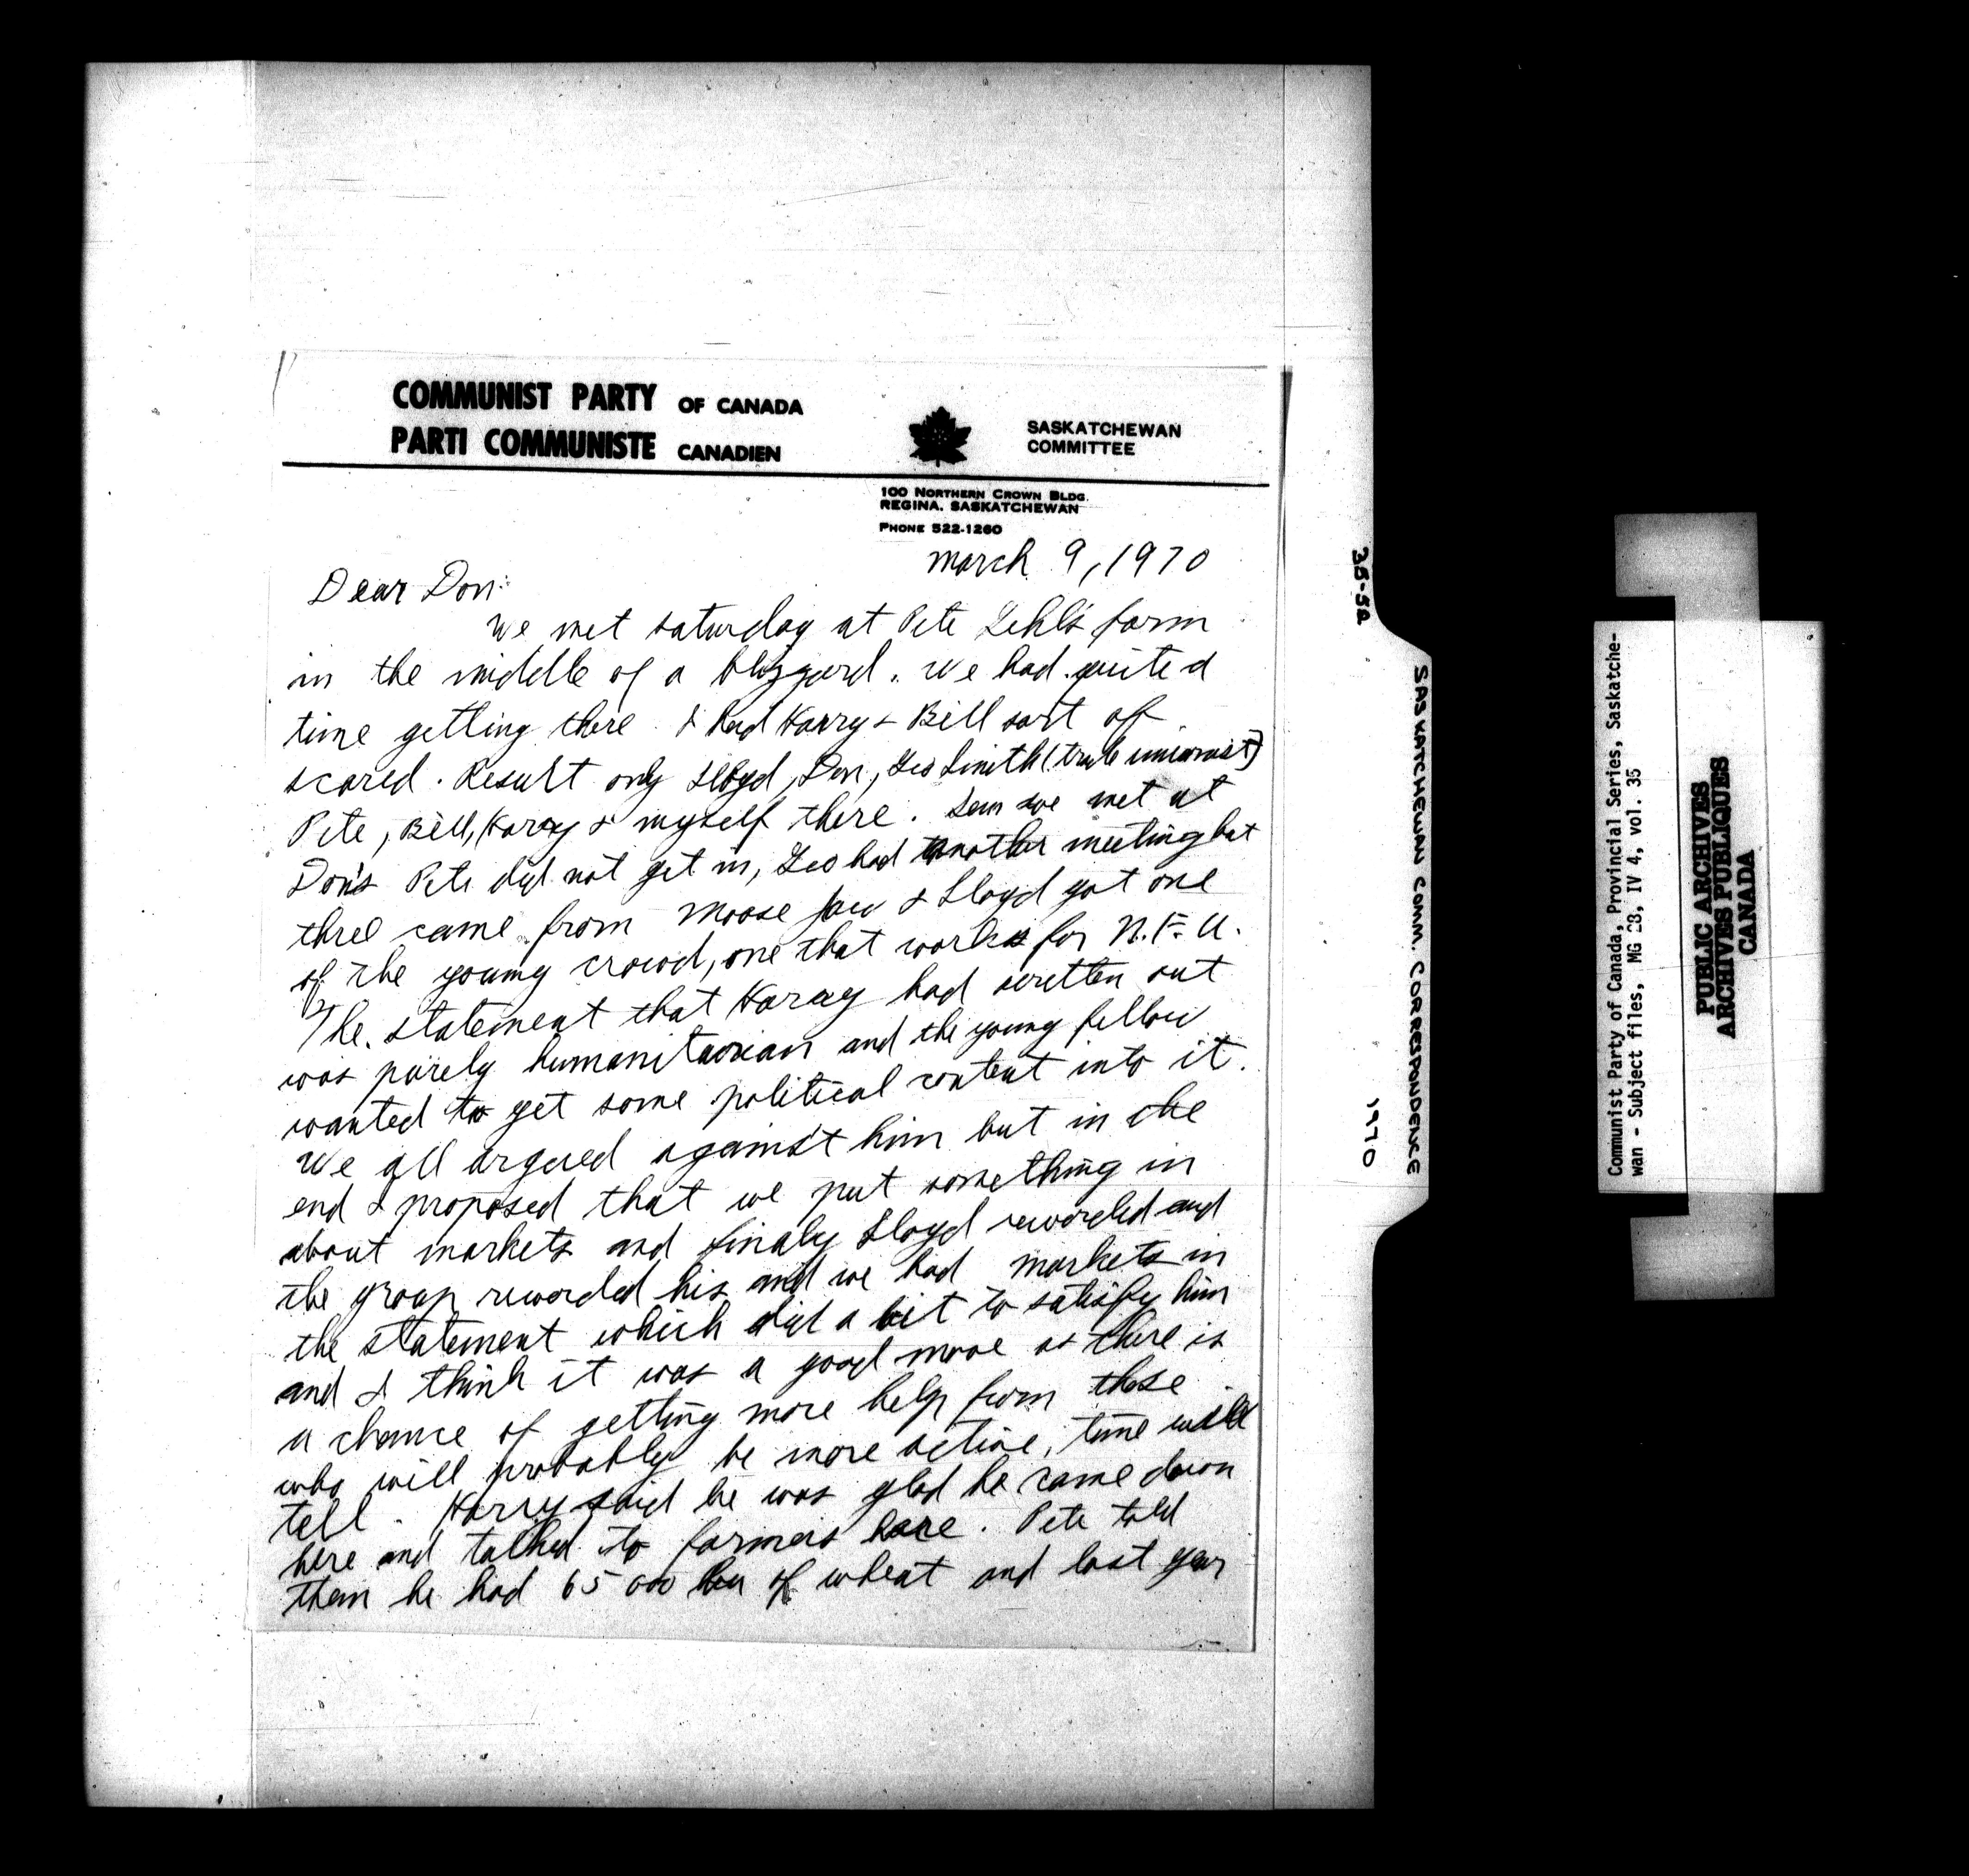 COMMUNIST PARTY OF CANADA
PARTI COMMUNISTE CANADIEN
SASKATCHEWAN
COMMITTEE
100 NORTHERN CROWN BLDG.
REGINA, SASKATCHEWAN
PHONE 522-1260
March 9, 1970
Dear Don:
We met saturday at Pete Lehl's farm
in the middle of a blizzard. We had quite a
time getting there I had Harry & Bill sort of
scared. Result only Lloyd, Don, Leo (trade unionist)
Pete, Bill, Harry & myself there. we met at
Don's Pete did not get in, Leo had another meeting but
three came from Moose Jaw & Lloyd got one
of the young crowd, one that works for N.F.U.
The statement that Harry had written out
was purely humanitarian and the young fellow
wanted to get some political content into it.
We all argued against him but in the
end I proposed that we put something in
about markets and finaly Lloyd reworded and
the group reworded his and we had markets in
the statement which did a bit to satisfy him
and I think it was a good move as there is
a chance of getting more help from these
who will probably be more active, time will
tell. Harry said he was glad he came down
here and talked to farmers here. Pete told
them he had 65 000 bu of wheat and last year
35-52
SASKATCHEWAN COMM. CORRESPONDENCE
1970
Communist Party of Canada, Provincial Series, Saskatche-
wan - Subject files, MG 28, IV 4, vol. 35
PUBLIC ARCHIVES
ARCHIVES PUBLIQUES
CANADA